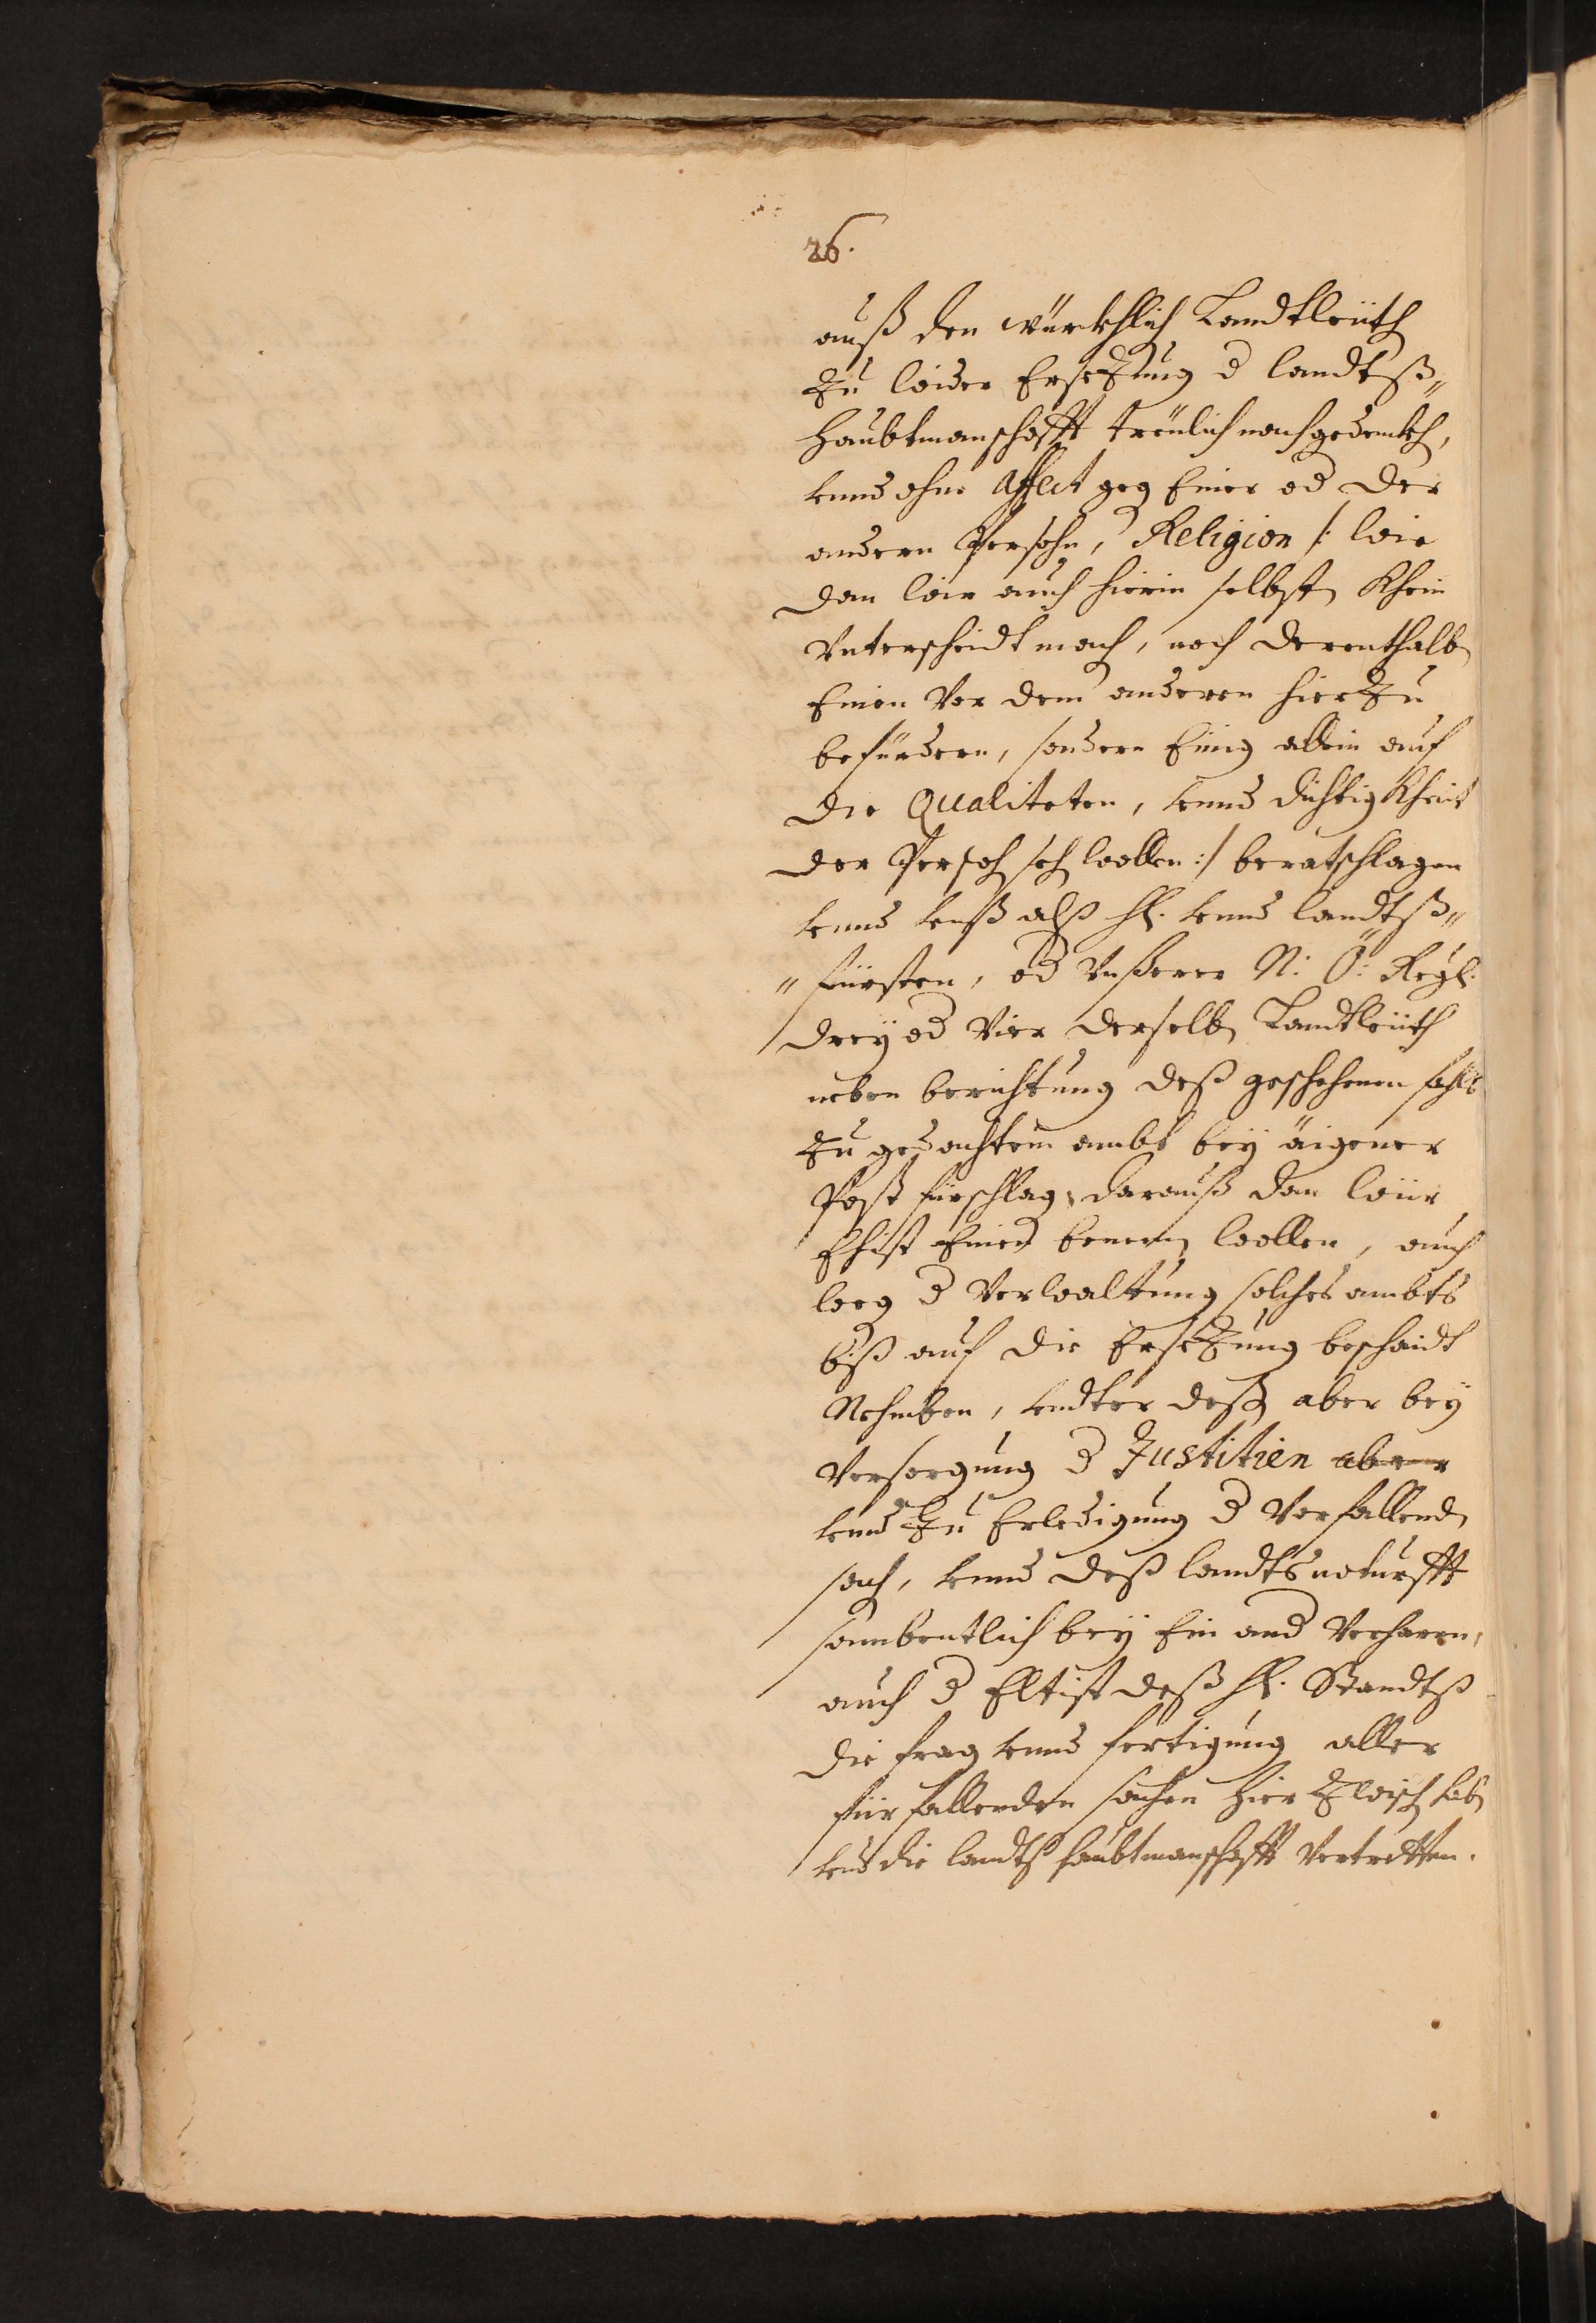 26.
auß den würckhlich Landtleüth
Zu wider Ersezung d landtß„
Haubtmanschafft treülich nachgedenckh,
vnnd ohne Affect geg Einer od der
andern Persohn, Religion /: wie
dan wir auch hierin selbst Khein
Vnterschidt mach, noch derenthalb
Einen Vor dem anderen hierZu
befürdern, sondern Einig allein auf
die Qualiteten, vnnd dichtigKheit
der Persoh seh wollen :/ beratschlagen
vnnd vnß alß H. vnnd landtß„
„fürsten, od Vnserer N: Ö: Regl.
drey od Vier derselb Landtleüth
neben berichtung deß geschehenen fahls
Zu gedachtem ambt bey äigener
Post fürschlag, darauß dan wür
Ehist Einen benenen wollen, auch
weg d Verwaltung solches ambts
biß auf die Ersezung beschaidt
Nehmben, vndter deß aber bey
Versorgung d Justitien aber
vnnd Zu Erledigung d Vorfallend
sach, vnnd deß landts noturfft
sambentlich bey Ein and Verharrn,
auch d Eltist deß H. Standtß
die frag vnnd fertigung aller
fürfallenden sachen hier Zwisch hab
vnd die landtß haubtmanschafft Vertretten.